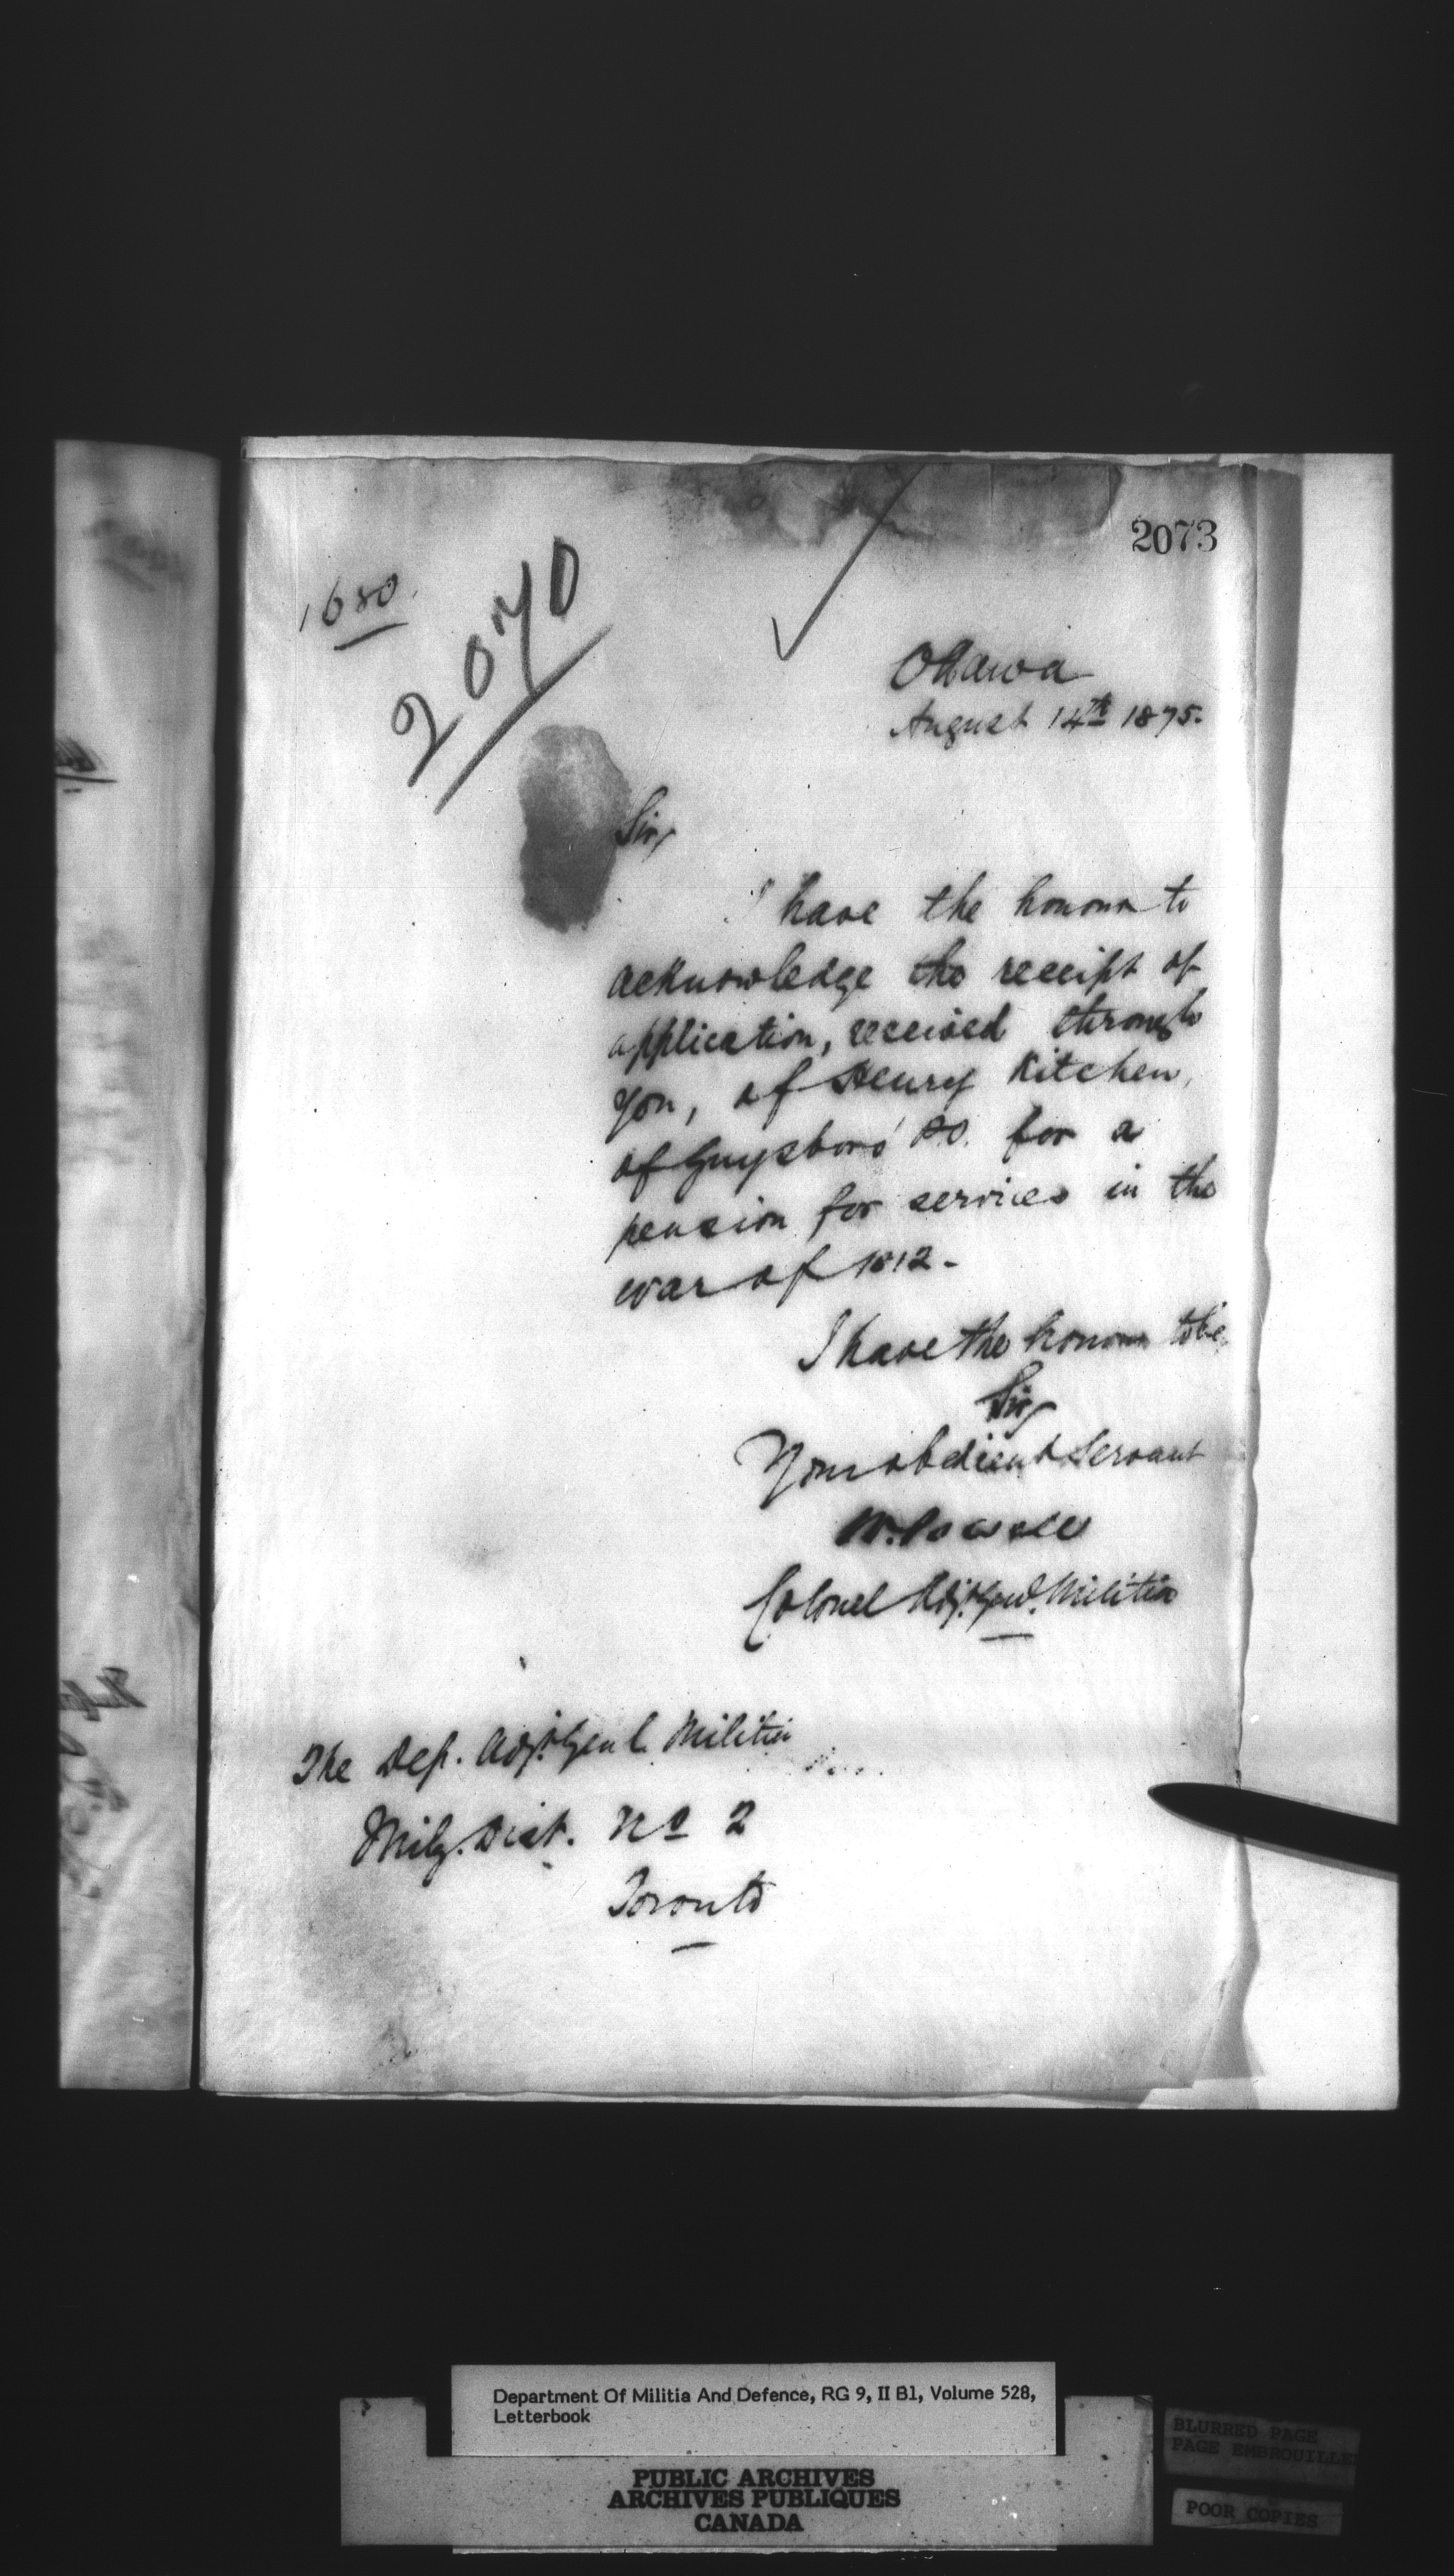 2073
1680.
2070
Ottawa
August 14th 1875.
Sir,
I have the honour to
acknowledge the receipt of
application, received through
you, of Henry Kitchen,
of Guysboro' P.O. for a
pension for services in the
war of 1812 -
I have the honour to be,
Sir,
Your obedient Servant
W. Powell
Colonel Adjt. Genl. Militia
The Dep. Adjt. Genl. Militia
Mily. Dist. No 2
Toronto
Department Of Militia And Defence, RG 9, II B1, Volume 528,
Letterbook
PUBLIC ARCHIVES
ARCHIVES PUBLIQUES
CANADA
BLURRED PAGE
PAGE EMBROUILLE
POOR COPIES